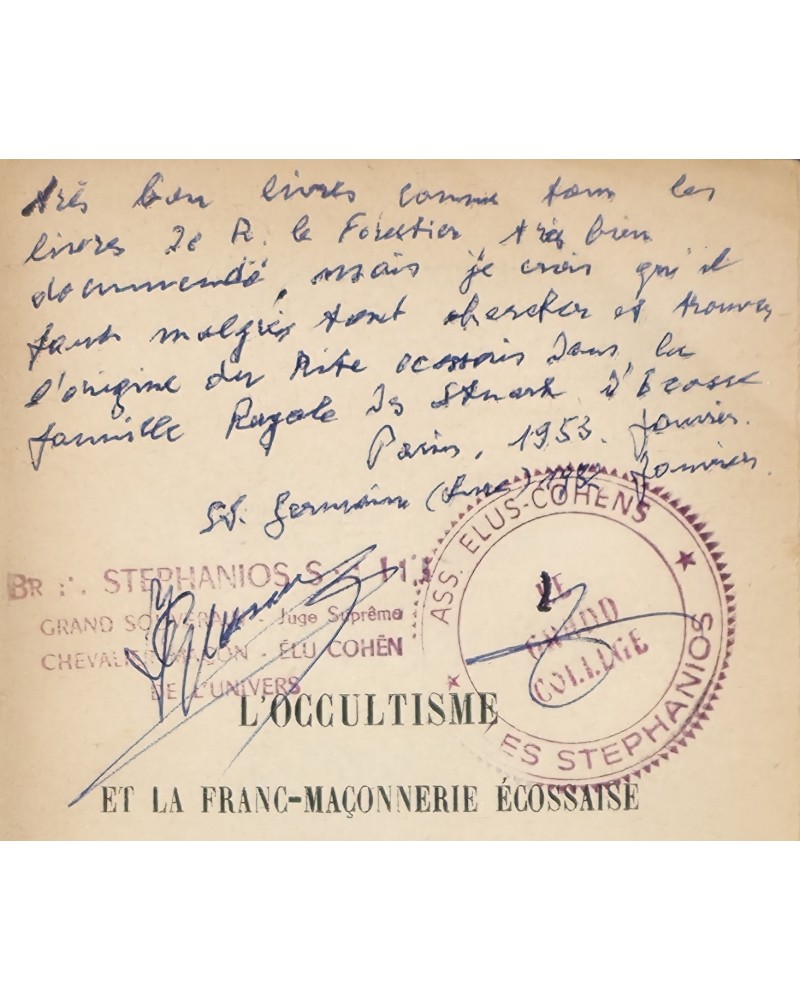 très bon livres comme tous les
livres de R. le Forestier très bien
documenté, mais je crois qu'il
faut malgré tout chercher et trouver
l'origine du Rite ecossais dans la
famille Royale des Stuart d'Ecosse
Paris, 1953. Janvier.
St. Germain (Luc) Janvier.
BR ∴ STEPHANIOS
GRAND SOUVERAIN - Juge Suprême
CHEVALIER MAÇON - ÉLU COHËN
DE L'UNIVERS
ASS. ELUS-COHENS
LE
GRAND
COLLEGE
LES STEPHANIOS
L'OCCULTISME
ET LA FRANC-MAÇONNERIE ÉCOSSAISE